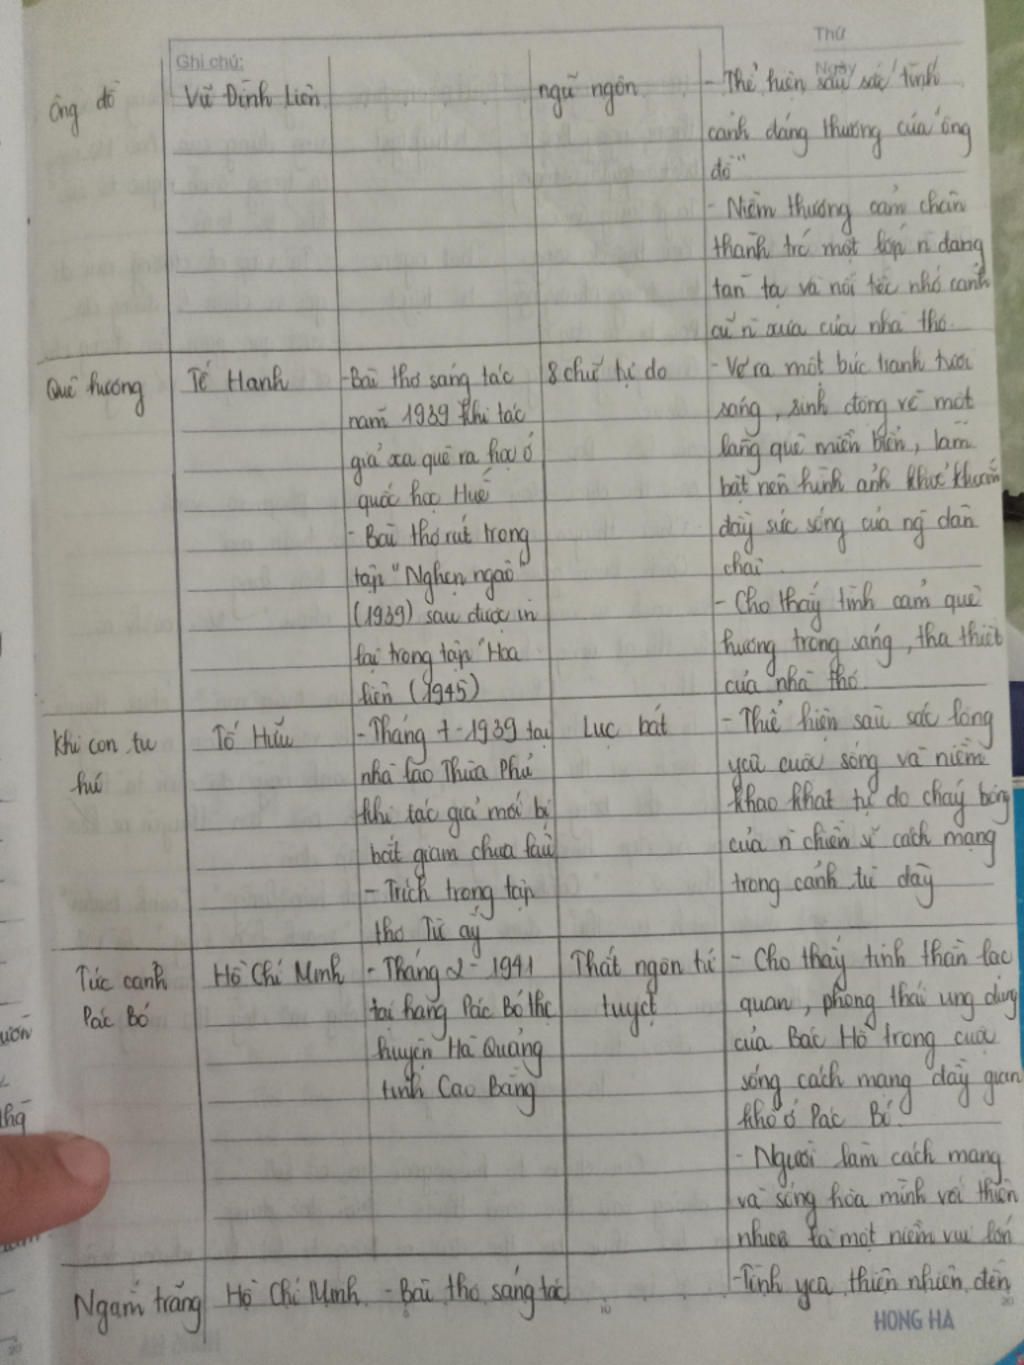 Thứ
Ghi chú:
Ngày
Ông đồ
Vũ Đình Liên
ngũ ngôn
- Thể hiện sâu sắc tình
cảnh đáng thương của "ông
đồ"
- Niềm thương cảm chân
thành trc một lớp n đang
tàn tạ và nỗi tiếc nhớ cảnh
cũ n xưa của nhà thơ.
Quê hương
Tế Hanh
- Bài thơ sáng tác
năm 1939 khi tác
giả xa quê ra học ở
quốc học Huế
- Bài thơ rút trong
tập "Nghẹn ngào"
(1939) sau được in
lại trong tập "Hoa
liên (1945)
8 chữ tự do
- Vẽ ra một bức tranh tươi
sáng, sinh động về một
làng quê miền biển, làm
bật nên hình ảnh khoẻ khoắn
đầy sức sống của ng dân
chài
- Cho thấy tình cảm quê
hương trong sáng, tha thiết
của nhà thơ.
Khi con tu
hú
Tố Hữu
- Tháng 7-1939 tại
nhà lao Thừa Phủ
khi tác giả mới bị
bắt giam chưa lâu
- Trích trong tập
thơ Từ ấy
Lục bát
- Thể hiện sâu sắc lòng
yêu cuộc sống và niềm
khao khát tự do cháy bỏng
của n chiến sĩ cách mạng
trong cảnh tù đày
Tức cảnh
Pác Bó
Hồ Chí Minh
- Tháng 2 - 1941
tại hang Pác Bó thc
huyện Hà Quảng
tỉnh Cao Bằng
Thất ngôn tứ
tuyệt
- Cho thấy tinh thần lạc
quan, phong thái ung dung
của Bác Hồ trong cuộc
sống cách mạng đầy gian
khổ ở Pác Bó.
- Người làm cách mạng
và sống hòa mình với thiên
nhiên là một niềm vui lớn
Ngắm trăng
Hồ Chí Minh
- Bài thơ sáng tác
- Tình yêu thiên nhiên đến
HONG HA